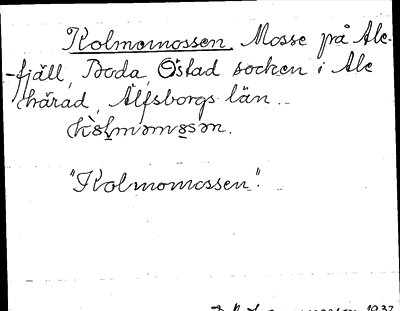 Kolmomossen. Mosse på Ale-
fjäll, Boda, Östad socken i Ale
härad, Älfsborgs län.
"Kolmomossen".
1932